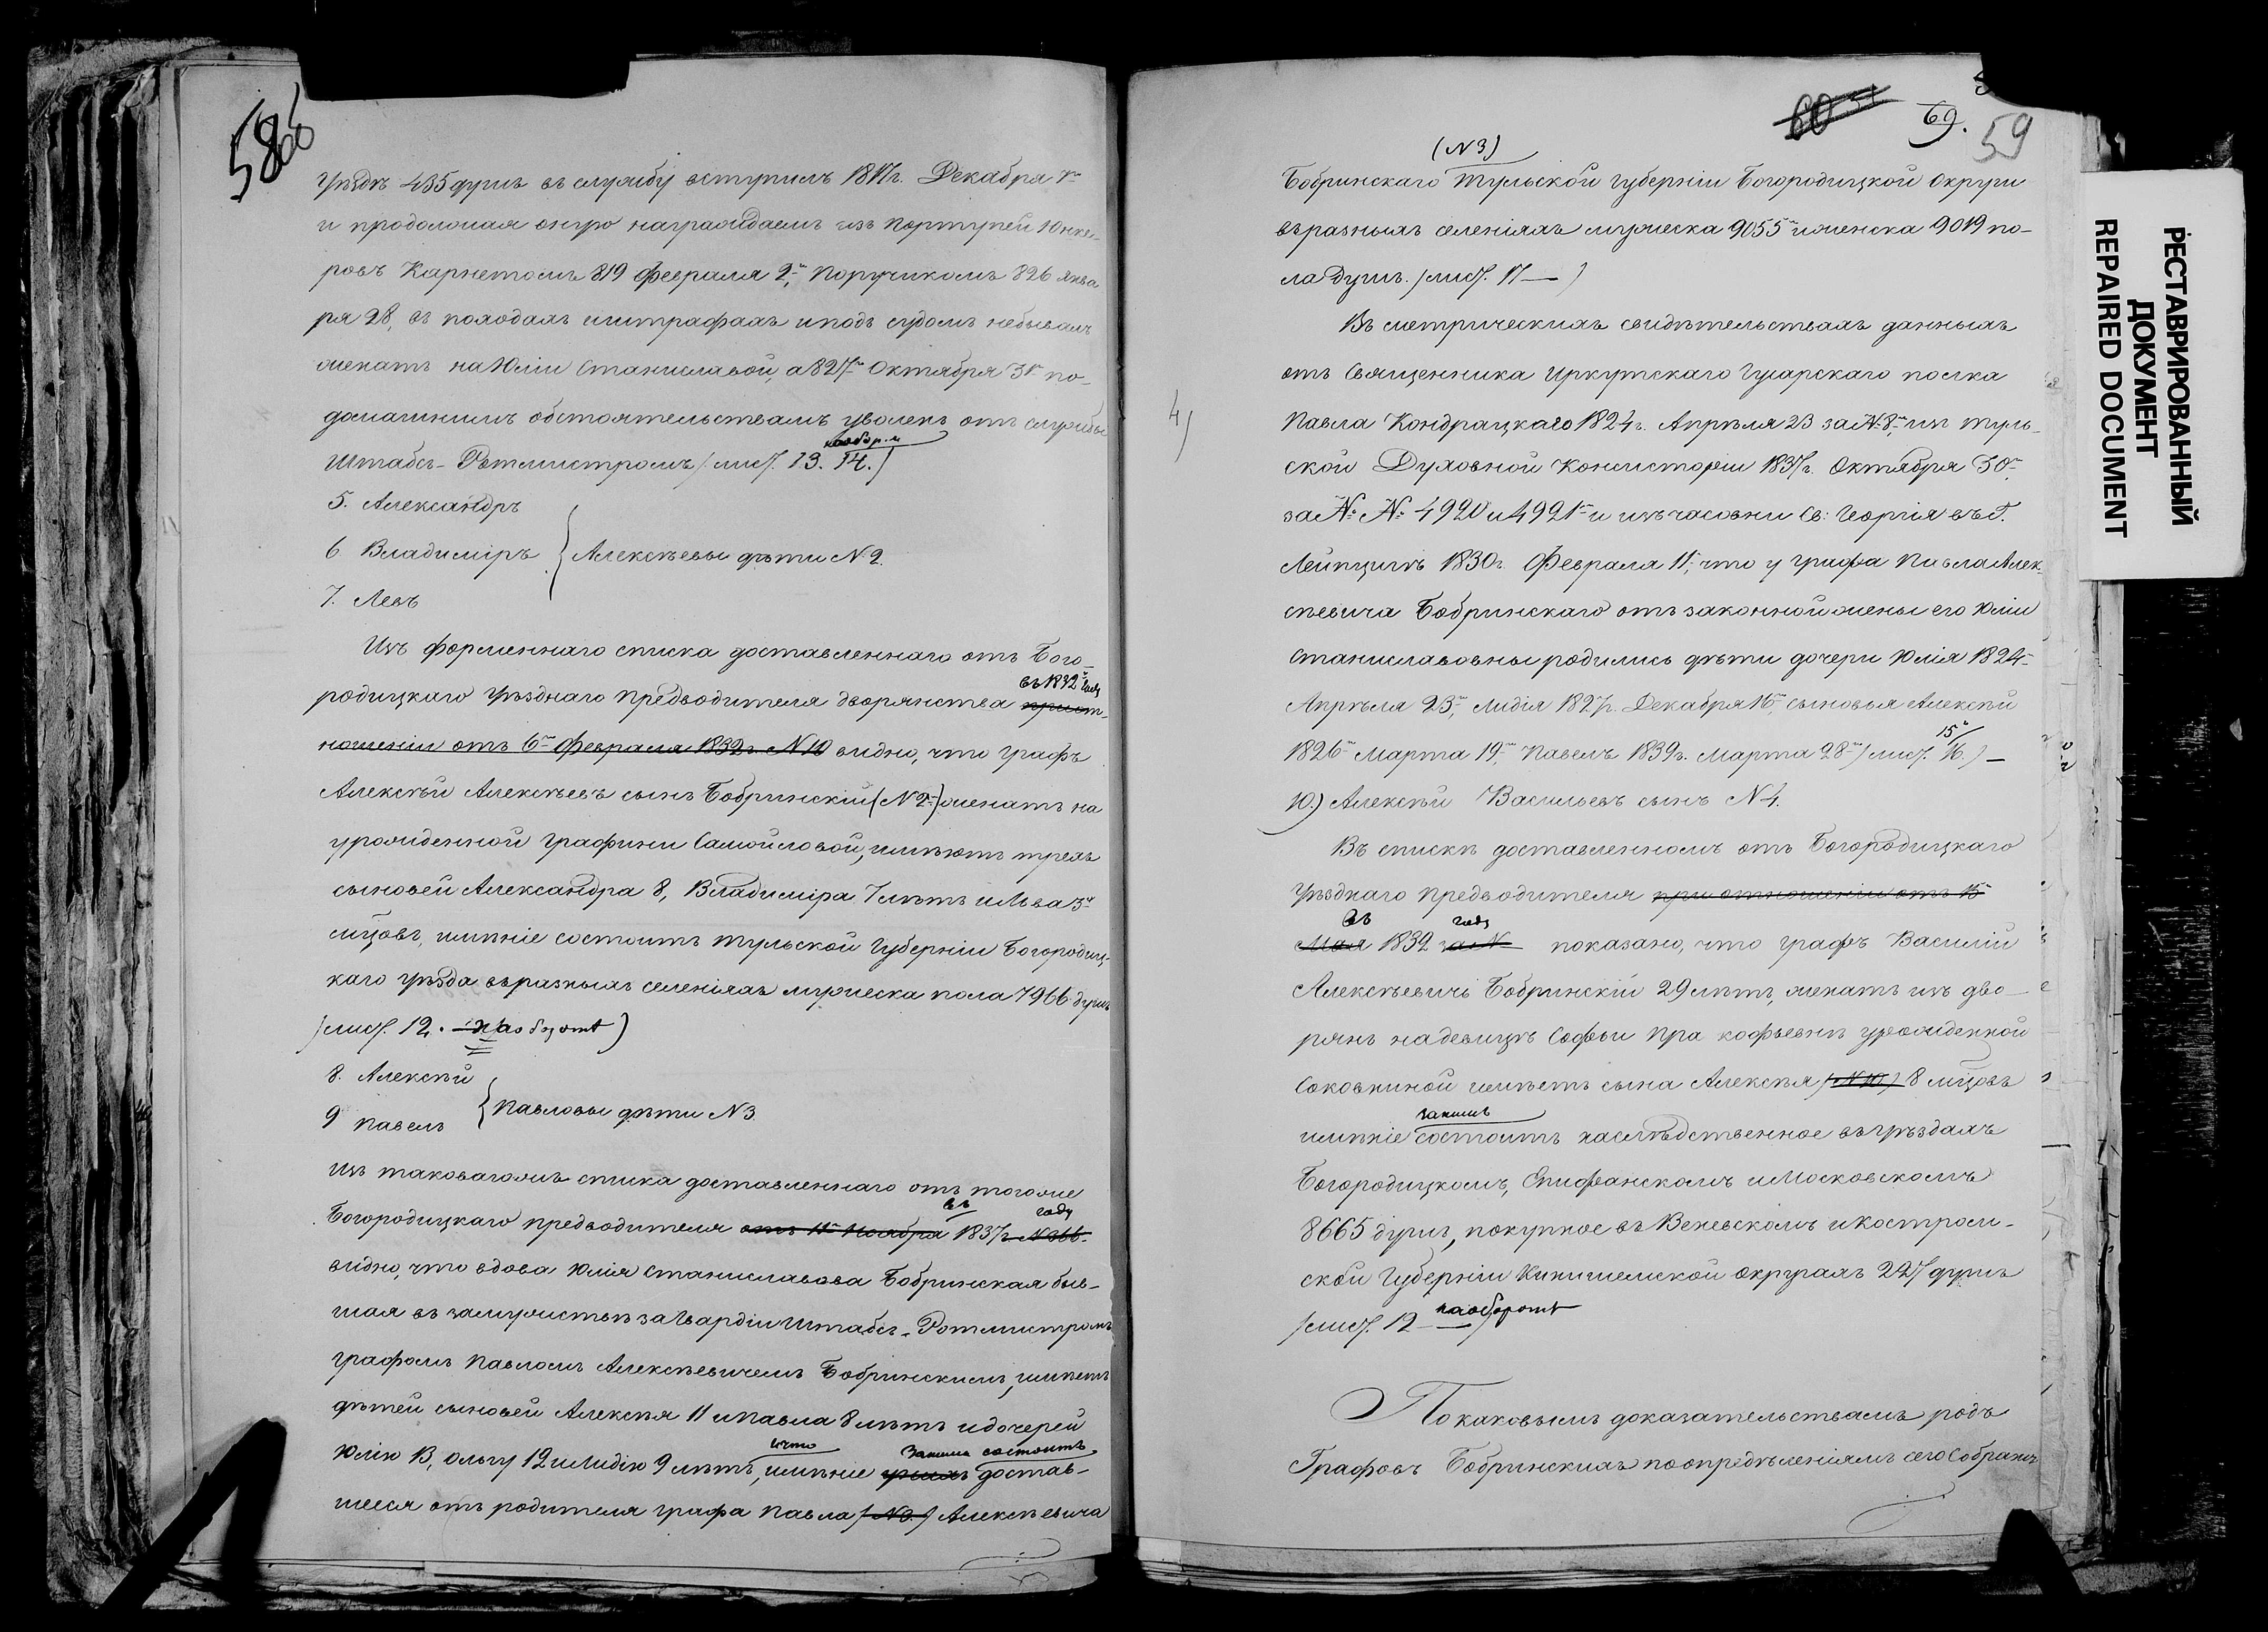 58об
уѣздѣ 435 душъ въ службу вступилъ 1817г. Декабря 1го
и продолжая оную награждаемъ изъ Портупей Юнке-
ровъ Карнетомъ 819 февраля 2го, Поручикомъ 826 Янва
ря 28, въ походахъ штрафахъ и подъ судомъ небывалъ
женатъ на Юліи Станиславой, а 827го Октября 31 по-
домашнимъ обстоятельствамъ уволенъ отъ службы
наобор. и
Штабсъ-Ротмистромъ (лист. 13. 14.)
5. Александръ
6 Владиміръ } Алексѣевы дѣти N 2.
7. Левъ
Изъ форменнаго списка доставленнаго отъ Бого-
въ 1832 году
родицкаго Уѣзднаго Предводителя дворянства приот-
ношеніи отъ 6го Февраля 1832г. N 10 видно, что Графъ
Алексѣй Алексѣевъ сынъ Бобринскій (N 2й) женатъ на
урожденной Графини Самойловой, имѣютъ трехъ
сыновей Александра 8, Владиміра 7 лѣтъ и Льва 3х
мцовъ, имѣніе состоитъ Тульской Губерніи Богородиц-
каго уѣзда въ разныхъ селеніяхъ мужеска пола 7966 душъ
(лист. 12. наоборотѣ)
8. Алексѣй
9 Павелъ } Павловы дѣти N 3
Изъ таковагожъ списка доставленнаго отъ тогоже
въ году
Богородицкаго предводителя отъ 11го Ноября 1837г. N 366.
видно, что вдова Юлія Станиславова Бобринская быв-
шая въ замужествѣ за Гвардіи Штабсъ-Ротмистромъ
графомъ Павломъ Алексѣевичемъ Бобринскимъ, имѣетъ
дѣтей сыновей Алексѣя 11 и Павла 8 лѣтъ и дочерей
и что за ними состоитъ
Юлію 13, Ольгу 12 и Лидію 9 лѣтъ, имѣніе достав-
шееся отъ родителя графа Павла (N 3.) Алексѣевича
60 51 69. 59
(N 3)
Бобринскаго Тульской Губерніи Богородицкой Округи
въ разныхъ селеніяхъ мужеска 9055 и женска 9019 по-
ла душъ. (лист. 17 — )
Въ метрическихъ свидѣтельствахъ данныхъ
отъ Священника Иркутскаго Гусарскаго полка
4)
Павла Кондрацкаго 1824г. Апрѣля 23 за № 8, изъ Туль-
ской Духовной Консисторіи 1837г. Октября 30го,
за № № 4920 и 4921 и изъ часовни Св: Георгія въ г.
Лейпцигѣ 1830г. Февраля 11, что у графа Павла Алек-
сѣевича Бобринскаго отъ законной жены его Юліи
Станиславовны родились дѣти дочери Юлія 1824
Апрѣля 23го, Лидія 1827г. Декабря 15, сыновья Алексѣй
15
1826го Марта 19го, Павелъ 1839г. Марта 28го (лист. 16.) —
10.) Алексѣй Васильевъ сынъ N 4.
Въ спискѣ доставленномъ отъ Богородицкаго
Уѣзднаго предводителя при отношеніи отъ 15
въ году
Мая 1832 за N показано, что графъ Василій
Алексѣевичъ Бобринскій 29 лѣтъ, женатъ изъ дво-
рянъ надевицѣ Софьи Пра кофьевнѣ урожденной
Соковниной имѣетъ сына Алексѣя (N 10) 8 мцовъ
за нимъ
имѣніе состоитъ наслѣдственное въ уѣздахъ
Богородицкомъ, Епифанскомъ и Московскомъ
8665 душъ, покупное въ Веневскомъ и Костром-
ской Губерніи Кинишемской округахъ 227 душъ
наоборотѣ
(лист. 12 — )
По каковымъ доказательствамъ родъ
Графовъ Бобринскихъ по опредѣленіямъ сего Собранія
РЕСТАВРИРОВАННЫЙ
ДОКУМЕНТ
REPAIRED DOCUMENT